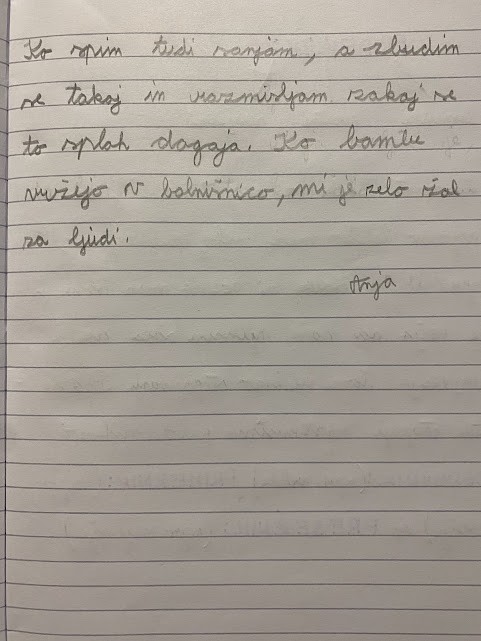 Ko spim tudi sanjam, a zbudim
se takoj in razmišljam zakaj se
to sploh dogaja. Ko bombe
vržejo v bolnišnico, mi je zelo žal
za ljudi.
Anja